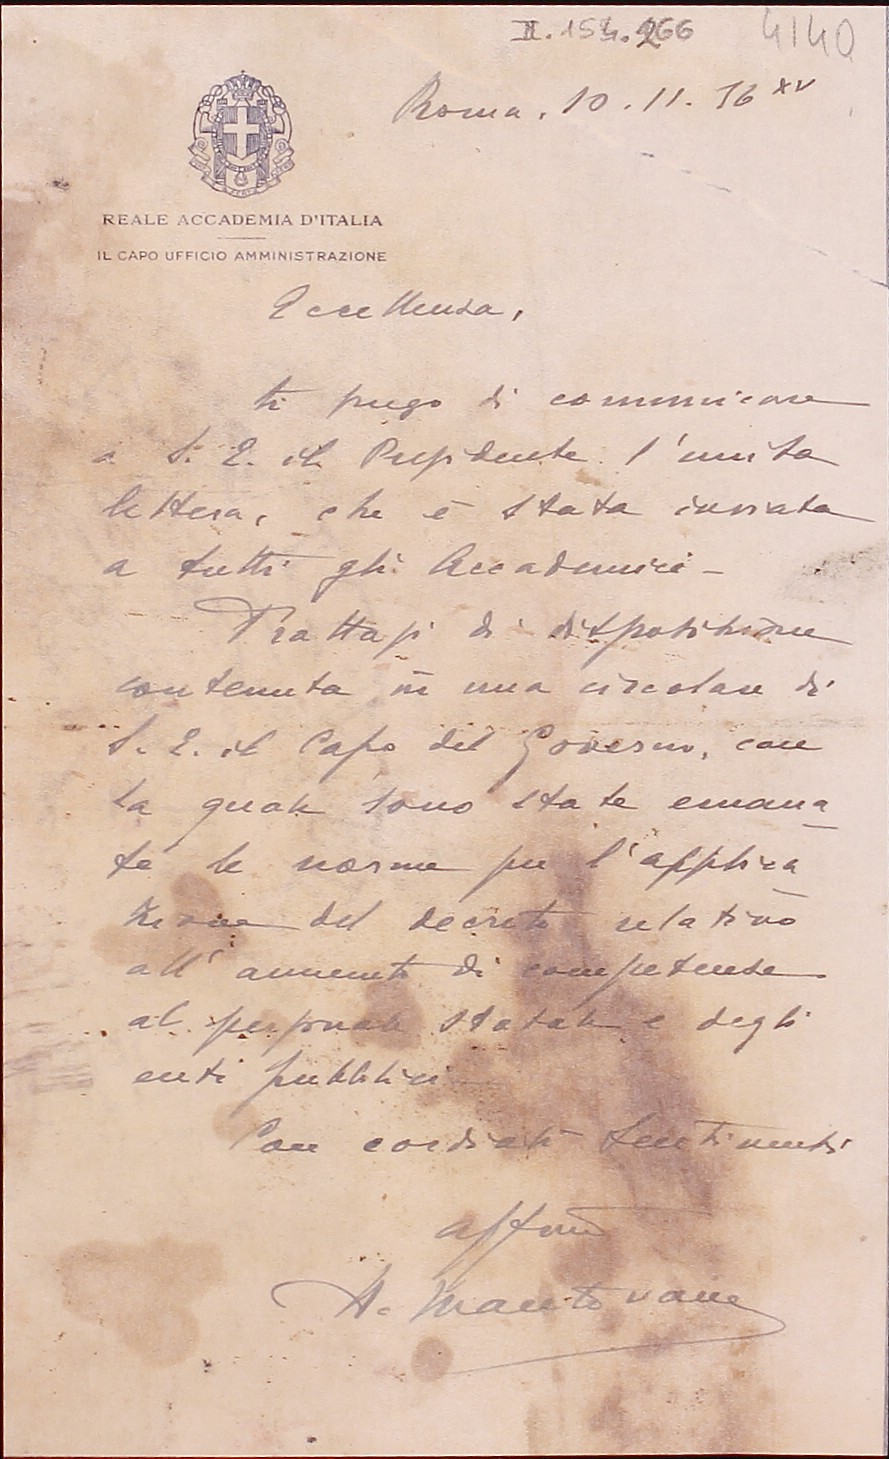 II. 154. 266
4140
Roma, 10. 11. 36 XV
REALE ACCADEMIA D'ITALIA
IL CAPO UFFICIO AMMINISTRAZIONE
Eccellenza,
ti prego di comunicare
a S. E. il Presidente l'unita
lettera, che è stata inviata
a tutti gli Accademici –
Trattasi di disposizione
contenuta in una circolare di
S. E. il Capo del Governo, con
la quale sono state emana
te le norme per l'applica
zione del decreto relativo
all'aumento di competenze
al personale statale e degli
enti pubblici –
Con cordiali sentimenti
affmo
A. Mantovani